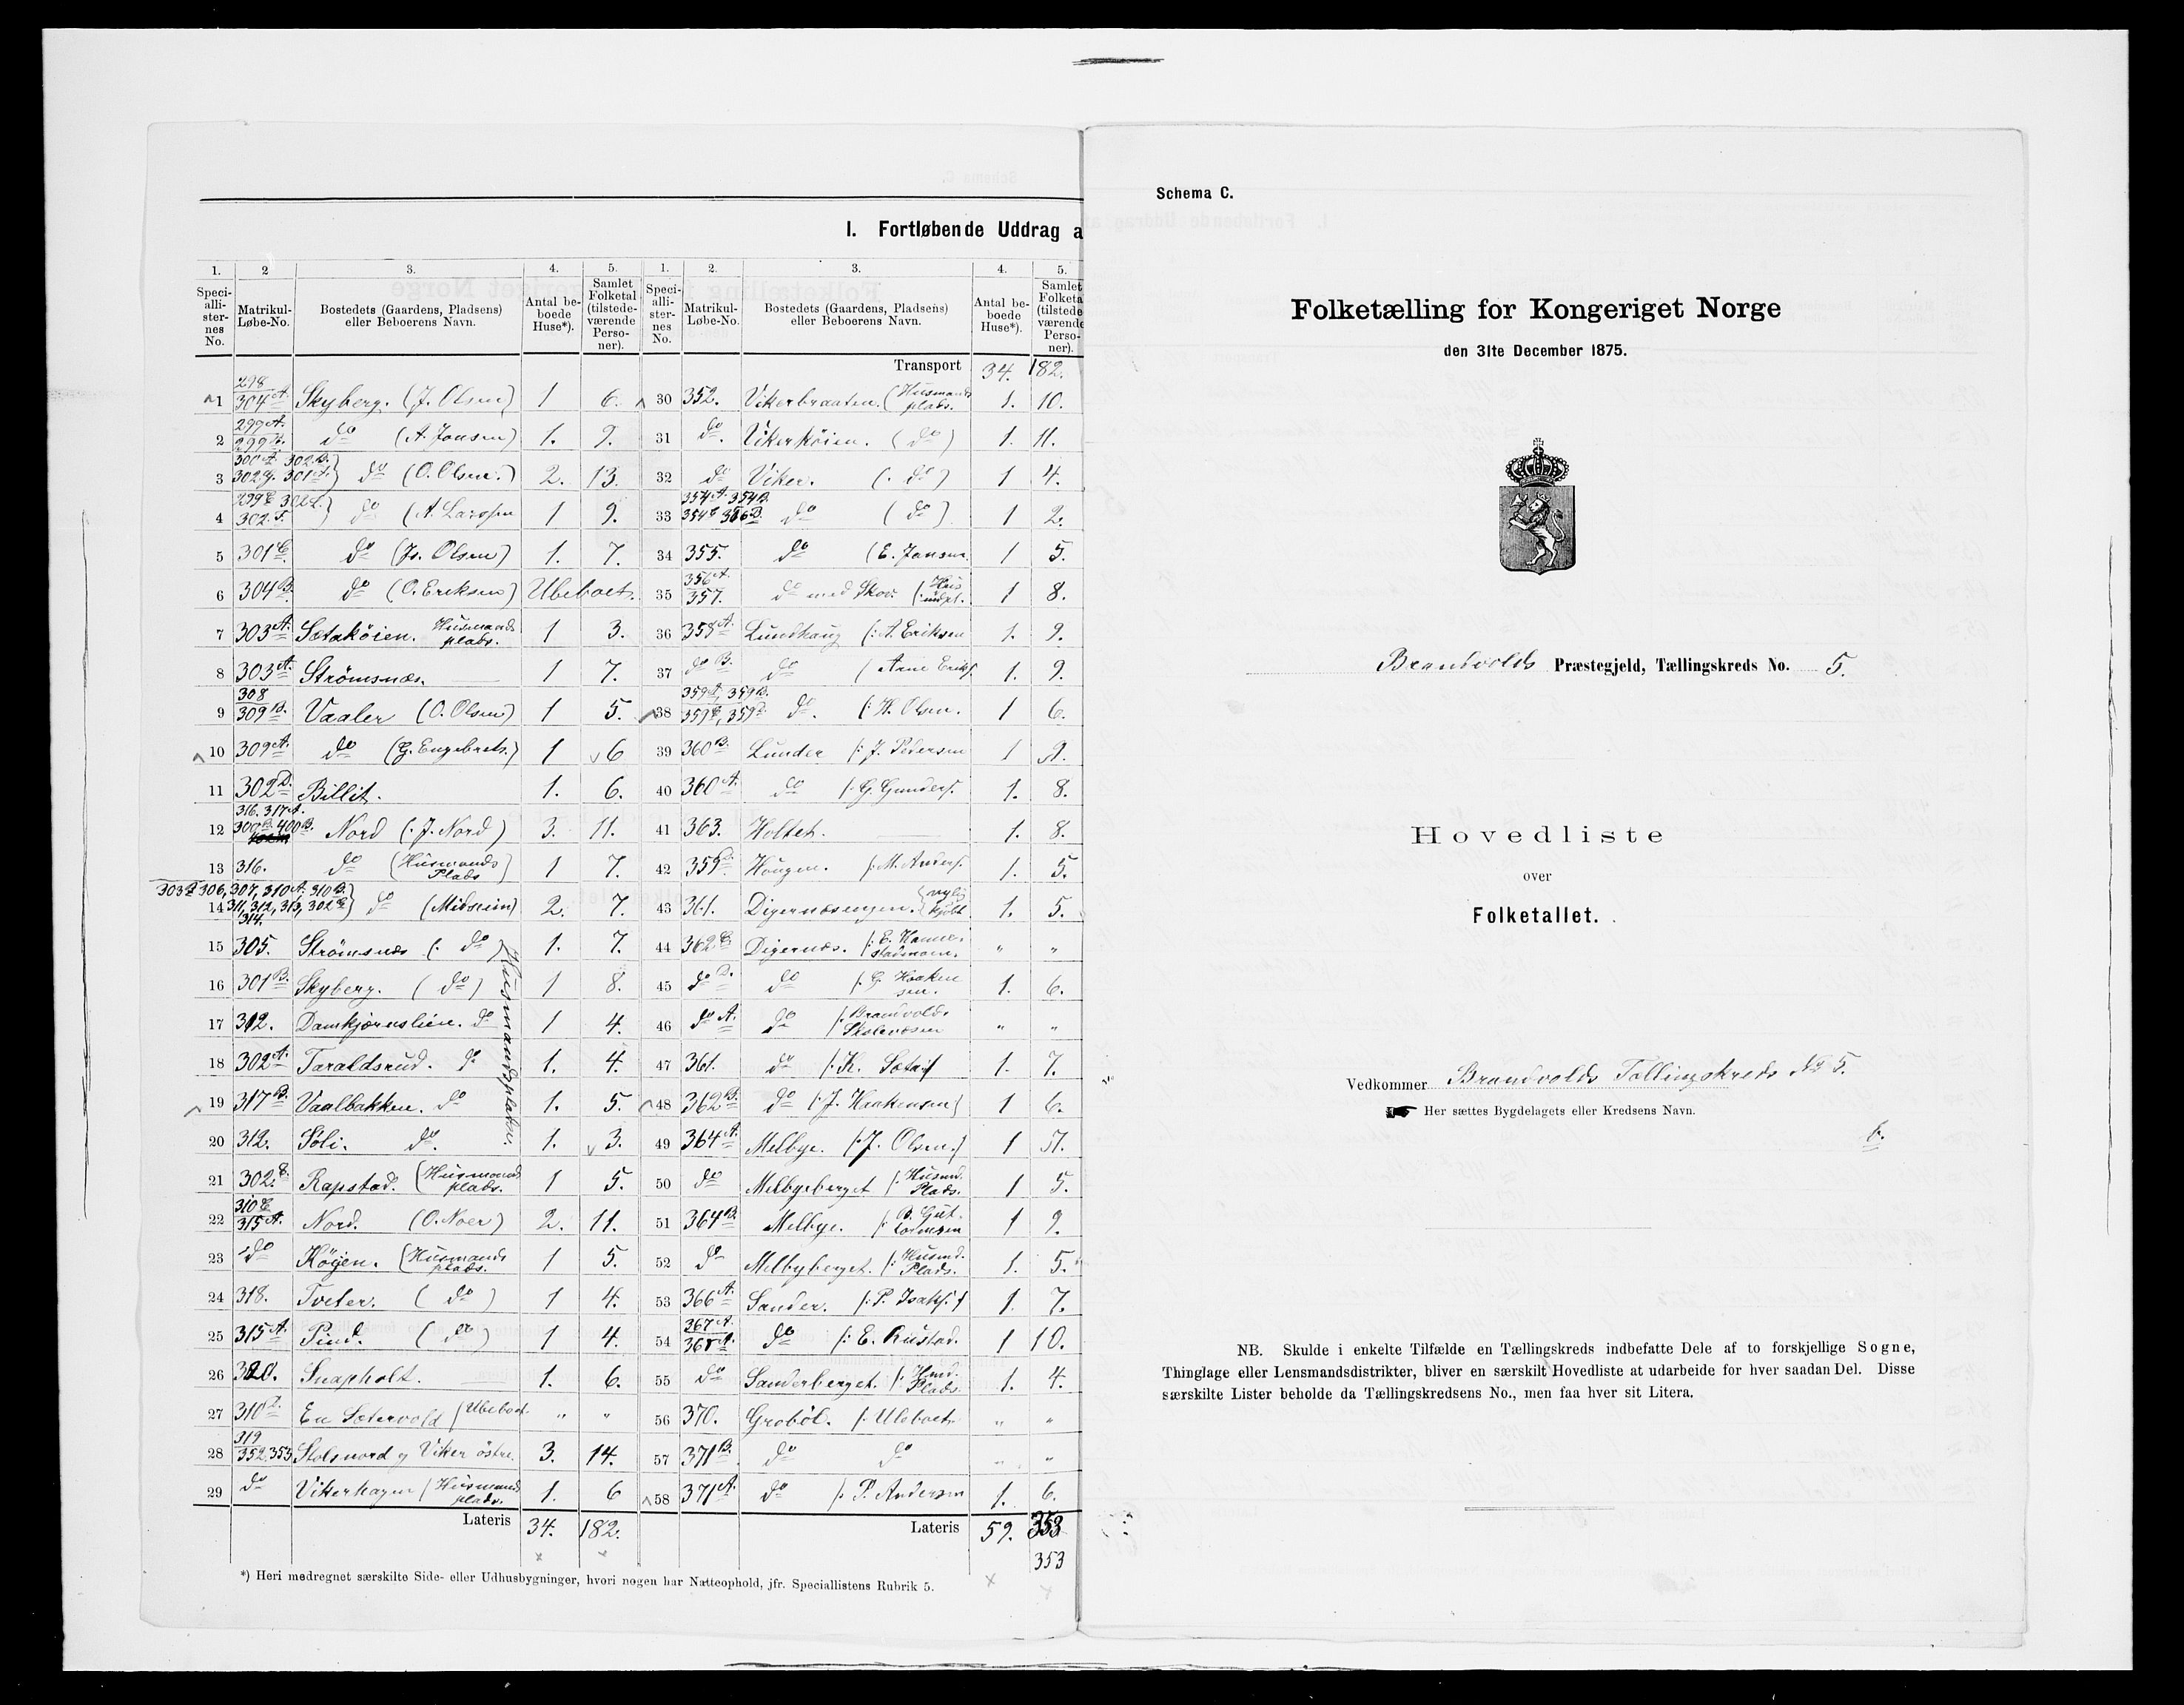 I. Fortløbende Uddrag a
1. 2 3. 4. 5. 1. 2. 3. 4. 5.
Speci-alli-ster-nes No. Matrikul-Løbe-No. Bostedets (Gaardens, Pladsens) eller Beboerens Navn. Antal be-boede Huse*). Samlet Folketal (tilstede-værende Perso-ner). Speci-alli-ster-nes No. Matrikul-Løbe-No. Bostedets (Gaardens, Pladsens) eller Beboerens Navn. Antal be-boede Huse*). Samlet Folketa (tilstede værende Perso-ner).
1 298 304 A. Skyberg. (J. Olsen) 1 6.
2 299 A. do (A. Jansen) 1. 9.
3 300 A. 302 B. 301 A. do (O. Olsen.) 2. 13.
4 302. F. do (A. Larssen 1 9.
5 301 C. do (Js. Olsen) 1. 7.
6 304 B. do (O. Eriksen) Ubeboet.
7 303 A. Sætaköien. Husmands plads. 1 3.
8 303 A. Strömsnæs. 1 7.
9 308 309 B. Vaaler (O. Olsen) 1 5.
10 309 A. do (G. Engebrets.) 1 6
11 302 D. Billit. 1. 6.
12 316. 317 A. 300 B. 400 B. Nord (. J. Nord) 3. 11.
13 316. do (Husmands Plads) 1 7.
14 303 306, 307, 310 A. 310 B. 311, 312, 313, 302 314. do (Midseim) 2. 7.
15 305. Strömsnæs (. do) 1. 7.
16 301 B. Skyberg. (do) 1 8.
17 312. Damkjærnslien. do 1 4.
18 302 A. Taraldsrud. do 1. 4.
Husmandspladse.
19 317 B. Vaalbakken. do 1. 5.
20 312. Söli. do 1. 3.
21 302. E. Rapstad. (Husmands plads. 1 5.
22 310 C 315 A. Nord. (O. Noer) 2. 11.
23 do Höijen. (Husmands plads. 1 5.
24 318. Tveter. (do) 1 4.
25 315 A. Pind. (do) 1 4.
26 320. Snapholt. 1. 6.
27 310 D. En Sætervold (Ubeboet. " "
28 319 352. 353 Stolsnord og Viker östre. 3. 14.
29 do Vikerhagen (Husmands plads. 1. 6
Lateris 34. 182.
Transport 34. 182.
30 352. Vikerbraaten. (Husmands plads. 1. 10.
31 do. Vikerköien. (do) 1. 11.
32 do Viker. (. do) 1 4.
33 354 A. 354 B. 354 C 356 B. do (do) 1 2.
34 355. do (E. Jansen. 1 5.
35 356 A. 357. do med Skov. (Hus mdpl. 1 8.
36 358 A. Lundhaug (: A. Eriksen 1. 9.
37 do B. do (Arne Eriks. 1. 9.
38 359 A, 359 B. 359 C, 359 do. (: H. Olsen. 1 6.
39 360 B. Lunder (: J. Pedersen 1 9.
40 360 A. do (. G. Gunders. 1. 8.
41 363. Holtet. 1. 8.
42 359 Hougen. (: M. Anders. 1. 5.
43 361. Digernæsengen. (nylig kjöbt 1. 5.
44 362 C Digernæs. " "
45 do D. do (. G. Haaken sen. 1. 6.
46 do A. do (. Brandvolds Skolevæsen " "
47 361. do (. K. Sæta 1. 7.
48 362 B. do (. J. Haakensen) 1 6.
49 364 A. Melbye. (. J. Olsen.) 1 11.
50 do Melbyeberget (. Husmd. Plads. 1 5.
51 364 B. Melbye. (. B. Gut tormsen 1 9.
52 do Melbyberget. (: Husmd. Plads. 1. 5.
53 366 A. Sander. (: P. Isaks. 1. 7.
54 367 A 368 A. do (: E. Rustad. 1 10.
55 do Sanderberget. (: Husmd. Plads. 1. 4.
56 370. Groböl. (: Ubeboet. " "
57 371 B. do do " "
58 371 A. do (: P. Andersen 1. 6.
Lateris 59. 353
353
*) Heri medregnet særskilte Side- eller Udhusbygninger, hvori nogen har Natteophold, jfr. Speciallistens Rubrik 5.
Schema C.
Folketælling for Kongeriget Norge
den 31te December 1875.
Brandvolds Præstegjeld, Tællingskreds No. 5.
Hovedliste
over
Folketallet.
Vedkommer Brandvolds Tællingskreds No 5.
Her sættes Bygdelagets eller Kredsens Navn.
b.
NB. Skulde i enkelte Tilfælde en Tællingskreds indbefatte Dele af to forskjellige Sogne,
Thinglage eller Lensmandsdistrikter, bliver en særskilt Hovedliste at udarbeide for hver saadan Del. Disse
særskilte Lister beholde da Tællingskredsens No., men faa hver sit Litera.